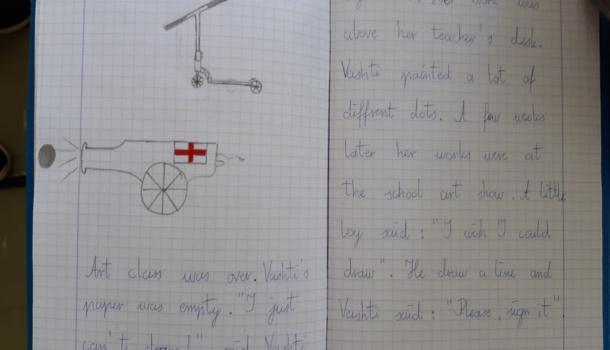 Art class was over. Vashti's
paper was empty. "I just
can't draw!" said Vashti
work was
above her teacher's desk.
Vashti painted a lot of
diffrent dots. A few weeks
later her works were at
the school art show. A little
boy said: "I wish I could
draw". He draw a line and
Vashti said: "Please, sign it".